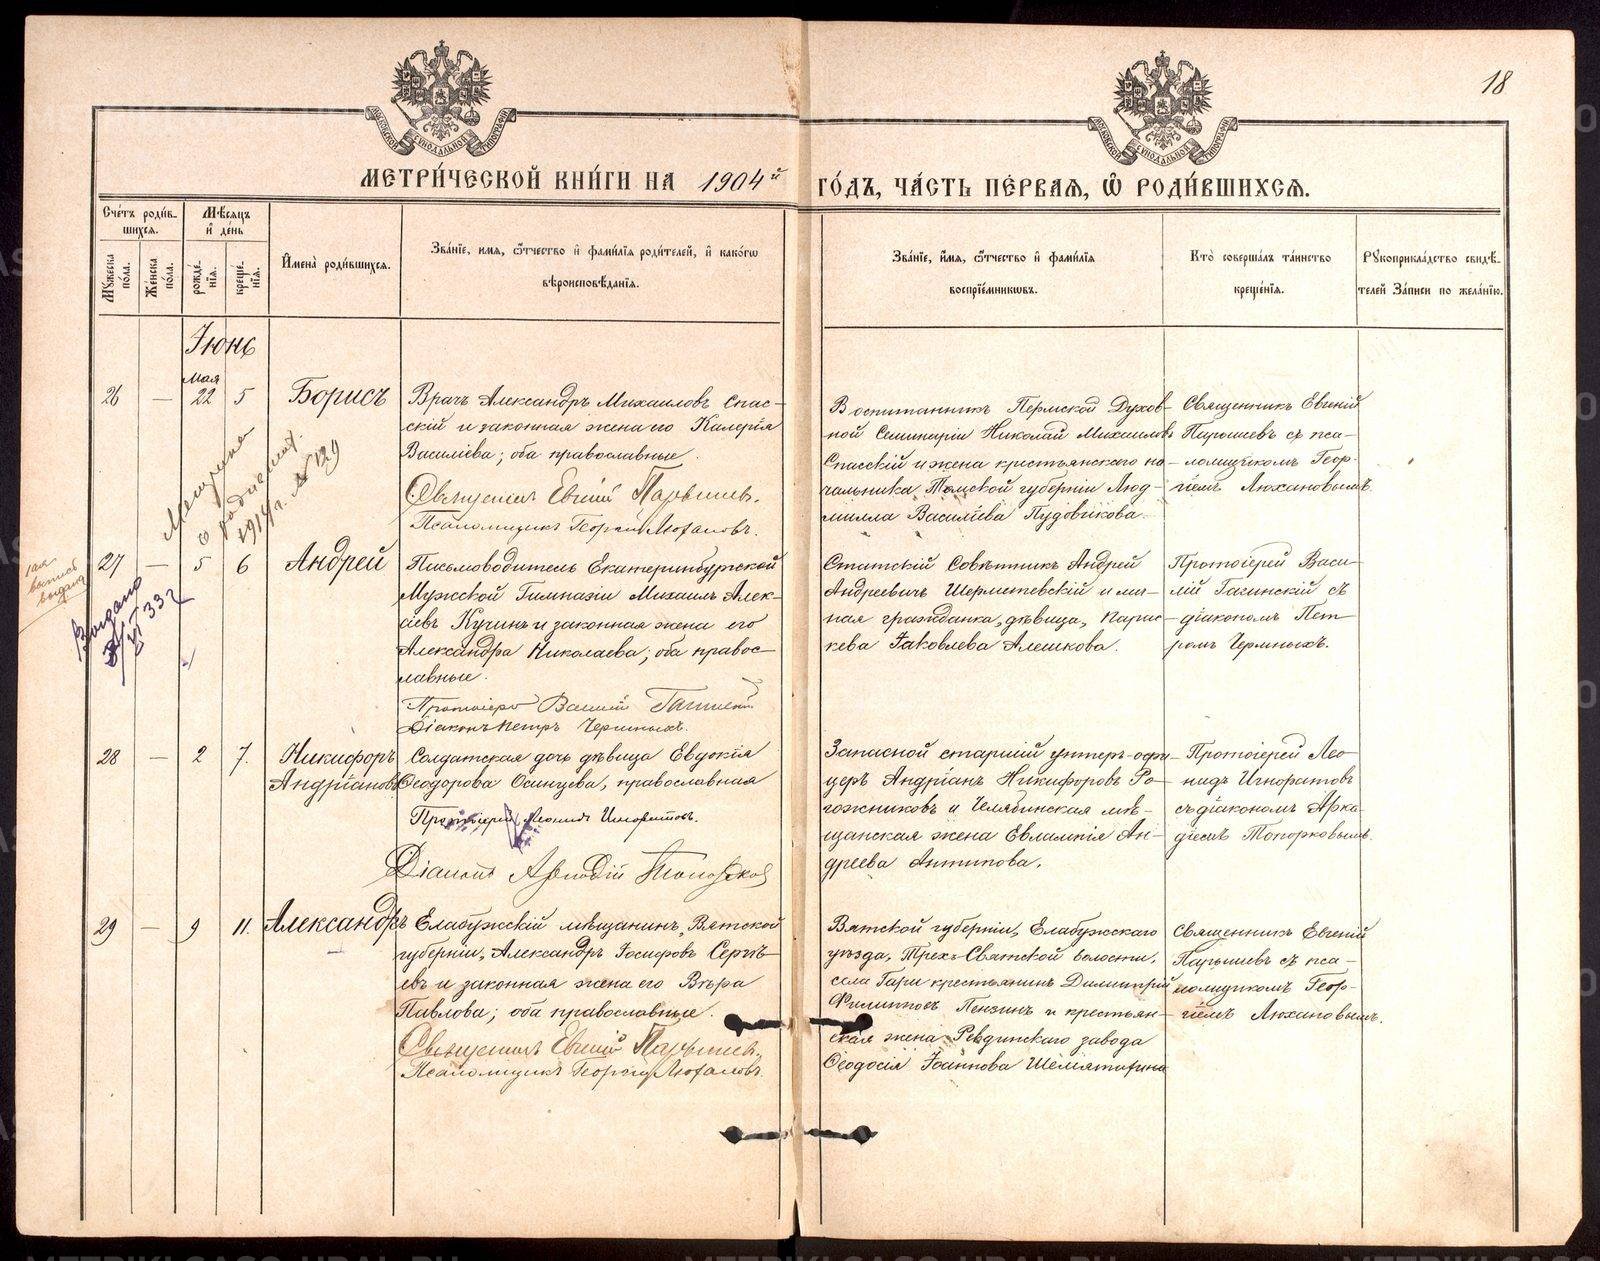 18
МОСКОВСКОЙ СУНОДАЛЬНОЙ ТИПОГРАФІИ
МОСКОВСКОЙ СУНОДАЛЬНОЙ ТИПОГРАФІИ
МЕТРИ́ЧЕСКОЙ КНИ́ГИ НА 1904й ГО́ДЪ, ЧА́СТЬ ПЕ́РВАЯ, Ѿ РОДИ́ВШИХСЯ.
Сче́тъ роди́в-
шихся.
Мѣ́сяцъ
и҆ де́нь
Мꙋ́жеска
по́ла.
Же́нска
по́ла.
рожде́-
нїя.
креще́-
нїя.
И҆мена̀ роди́вшихся.
Зва́нїе, и҆мя, ѻ҆́тчество и҆ фами́лїя роди́телей, и҆ како́гѡ
вѣроисповѣ́данїя.
Зва́нїе, и҆́мя, ѻ҆́тчество и҆ фами́лїя
воспрїе́мникѡвъ.
Кто̀ соверша́лъ та́инство
креще́нїя.
Рꙋкоприкла́дство свидѣ́-
телей За́писи по жела́нїю.
Іюнь
Мая
26 — 22 5 Борисъ
Врачъ Александръ Михаиловъ Спас-
скій и законная жена его Калерія
Василіева; оба православные.
Священникъ Евгеній Парышевъ.
Псаломщикъ Георгій Люхановъ.
Воспитанникъ Пермской Духов-
ной Семинаріи Николай Михаиловъ
Спасскій и жена крестьянского на-
чальника Томской губерніи Люд-
милла Василіева Пудовикова.
Священникъ Евгеній
Парышевъ съ пса-
ломщикомъ Геор-
гіемъ Люхановымъ.
1914 г. № 129
1ая
выпись
выдана
Выдано
VI 33 г
27 — 5 6 Андрей
Письмоводитель Екатеринбургской
Мужской Гимназіи Михаилъ Алек-
сіевъ Кучинъ и законная жена его
Александра Николаева; оба правос-
лавные.
Протоіерей Василій Гагинскій
Діаконъ Петръ Черныхъ.
Статскій Совѣтникъ Андрей
Андреевичъ Шереметевскій и лич-
ная гражданка, дѣвица, Парас-
кева Іаковлева Алешкова.
Протоіерей Васи-
лій Гагинскій съ
діакономъ Пет-
ромъ Черныхъ.
28 — 2 7. Никифоръ
Андріановъ
Солдатская дочь дѣвица Евдокія
Ѳеодорова Осинцева, православная
Протоіерей Леонидъ Игноратовъ.
Діаконъ Аркадій Топорковъ
Запасной старшій унтеръ-офи-
церъ Андріанъ Никифоровъ Ро-
гожниковъ и Челябинская мѣ-
щанская жена Евлампія Ан-
дреева Антипова.
Протоіерей Лео-
нидъ Игноратовъ
съ діакономъ Арка-
діемъ Топорковымъ.
29 — 9 11. Александръ
Елабужскій мѣщанинъ, Вятской
губерніи, Александръ Іосифовъ Сергѣ-
евъ и законная жена его Вѣра
Павлова; оба православные.
Священникъ Евгеній Парышевъ.
Псаломщикъ Георгій Люхановъ.
Вятской губерніи, Елабужскаго
уѣзда, Трехъ-Святской волости,
села Гари крестьянинъ Димитрій
Филипповъ Пензинъ и крестьян-
ская жена Ревдинскаго завода
Ѳеодосія Іоаннова Шелятигина
Священникъ Евгеній
Парышевъ съ пса-
ломщикомъ Геор-
гіемъ Люхановымъ.